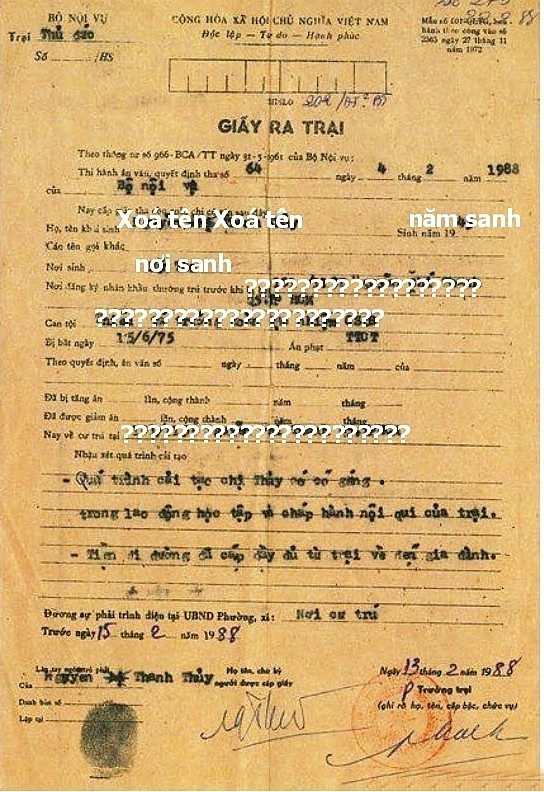 BỘ NỘI VỤ
Trại Thủ đức
Số /HS
CỘNG HÒA XÃ HỘI CHỦ NGHĨA VIỆT NAM
Độc lập — Tự do — Hạnh phúc
hành theo công văn số
2565 ngày 27 tháng 11
năm 1972
GIẤY RA TRẠI
Theo thông tư số 966-BCA/TT ngày 31-5-1961 của Bộ Nội vụ;
Thi hành án văn, quyết định tha số 64 ngày 4 tháng 2 năm 1988
của Bộ nội vụ
Nay cấp giấy tha cho
Họ, tên khai sinh Xoá tên Xoá tên Sinh năm 19 năm sanh
Các tên gọi khác
Nơi sinh nơi sanh
Nơi đăng ký nhân khẩu thường trú trước khi bị ??????????????????
Can tội ??????????????????????
Bị bắt ngày 15/6/75 Án phạt TTCT
Theo quyết định, án văn số ngày tháng năm của
Đã bị tăng án lần, cộng thành năm tháng
Đã được giảm án lần, cộng thành năm tháng
Nay về cư trú tại ??????????????????????
Nhận xét quá trình cải tạo
- Quá trình cải tạo chị Thủy có cố gắng.
trong lao động học tập và chấp hành nội qui của trại.
- Tiền đi đường đã cấp đầy đủ từ trại về đến gia đình.
Đương sự phải trình diện tại UBND Phường, xã: Nơi cư trú
Trước ngày 15 tháng 2 năm 1988
Lăn tay ngón trỏ phải
Của Nguyen Thanh Thủy
Danh bản số
Lập tại
Họ tên, chữ ký
người được cấp giấy
Ngày 13 tháng 2 năm 1988
P Trưởng trại
(ghi rõ họ, tên, cấp bậc, chức vụ)